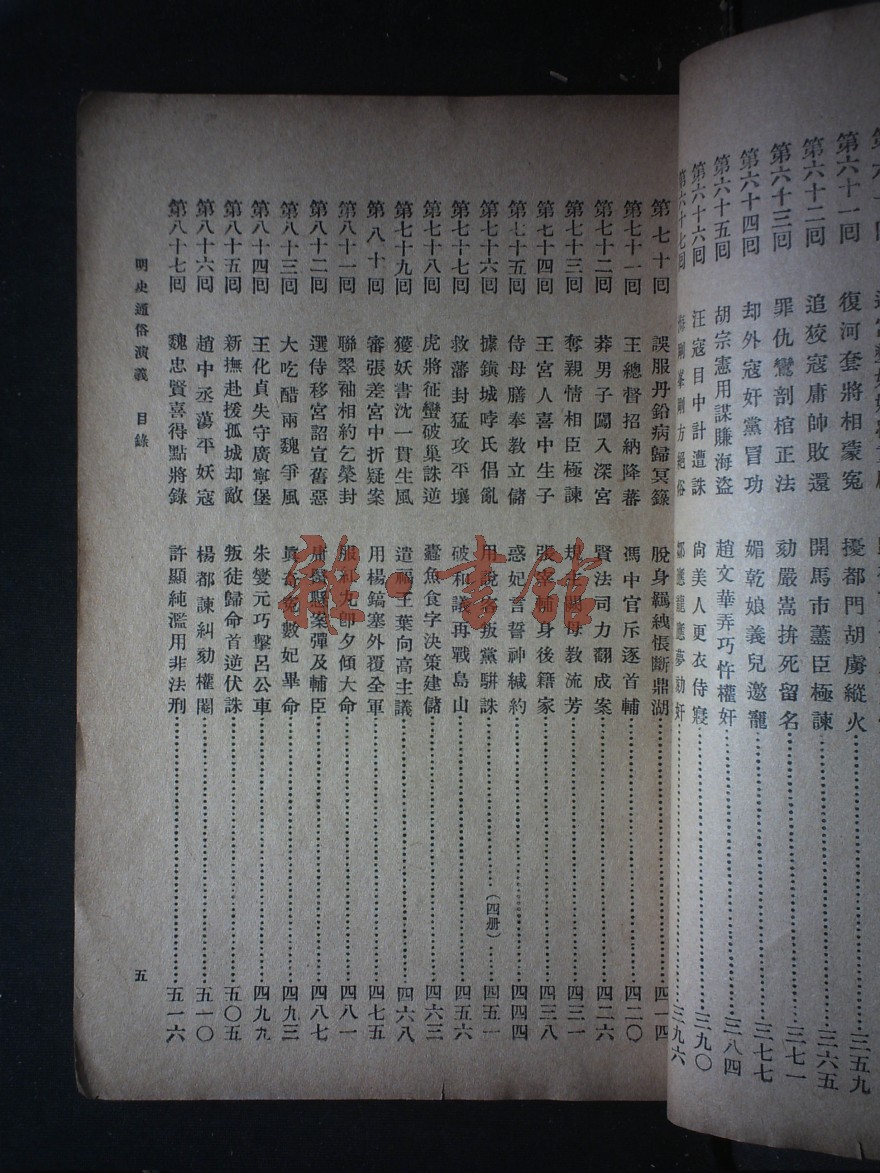 第六十一回 復河套將相蒙冤 擾都門胡虜縱火 三五九
第六十二回 追狡寇庸帥敗還 開馬市藎臣極諫 三六五
第六十三回 罪仇鸞剖棺正法 劾嚴嵩拚死留名 三七一
第六十四回 却外寇奸黨冒功 媚乾娘義兒邀寵 三七七
第六十五回 胡宗憲用謀賺海盜 趙文華弄巧忤權奸 三八四
第六十六回 汪寇目中計遭誅 尙美人更衣侍寢 三九〇
第六十七回 剛方絕俗 鄒應龍應夢劾奸 三九六
第七十回 誤服丹鉛病歸冥籙 脫身羈紲悵斷鼎湖 四一四
第七十一回 王總督招納降蕃 馮中官斥逐首輔 四二〇
第七十二回 莽男子闖入深宮 賢法司力翻成案 四二六
第七十三回 奪親情相臣極諫 規主闕母教流芳 四三一
第七十四回 王宮人喜中生子 張宰輔身後籍家 四三八
第七十五回 侍母膳奉教立儲 惑妃言誓神緘約 四四四
第七十六回 據鎮城哱氏倡亂 用說客叛黨駢誅 (四册) 四五一
第七十七回 救藩封猛攻平壤 破和議再戰島山 四五六
第七十八回 虎將征蠻破巢誅逆 蠹魚食字決策建儲 四六三
第七十九回 獲妖書沈一貫生風 遣福王葉向高主議 四六八
第八十回 審張差宮中折疑案 用楊鎬塞外覆全軍 四七五
第八十一回 聯翠袖相約乞榮封 服紅丸卽夕傾大命 四八一
第八十二回 選侍移宮詔宣舊惡 庸醫懸案彈及輔臣 四八七
第八十三回 大吃醋兩魏爭風 眞奇冤數妃畢命 四九三
第八十四回 王化貞失守廣寧堡 朱燮元巧擊呂公車 四九九
第八十五回 新撫赴援孤城却敵 叛徒歸命首逆伏誅 五〇五
第八十六回 趙中丞蕩平妖寇 楊都諫糾劾權閹 五一〇
第八十七回 魏忠賢喜得點將錄 許顯純濫用非法刑 五一六
明史通俗演義 目錄 五
雜·書館